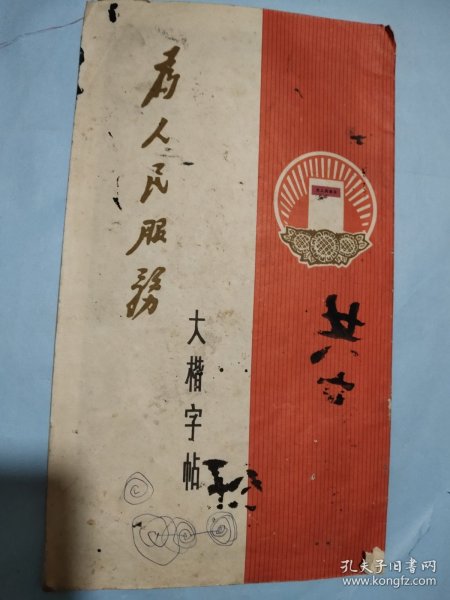 为人民服務
大楷字帖
孔夫子旧书网
www.kongfz.com